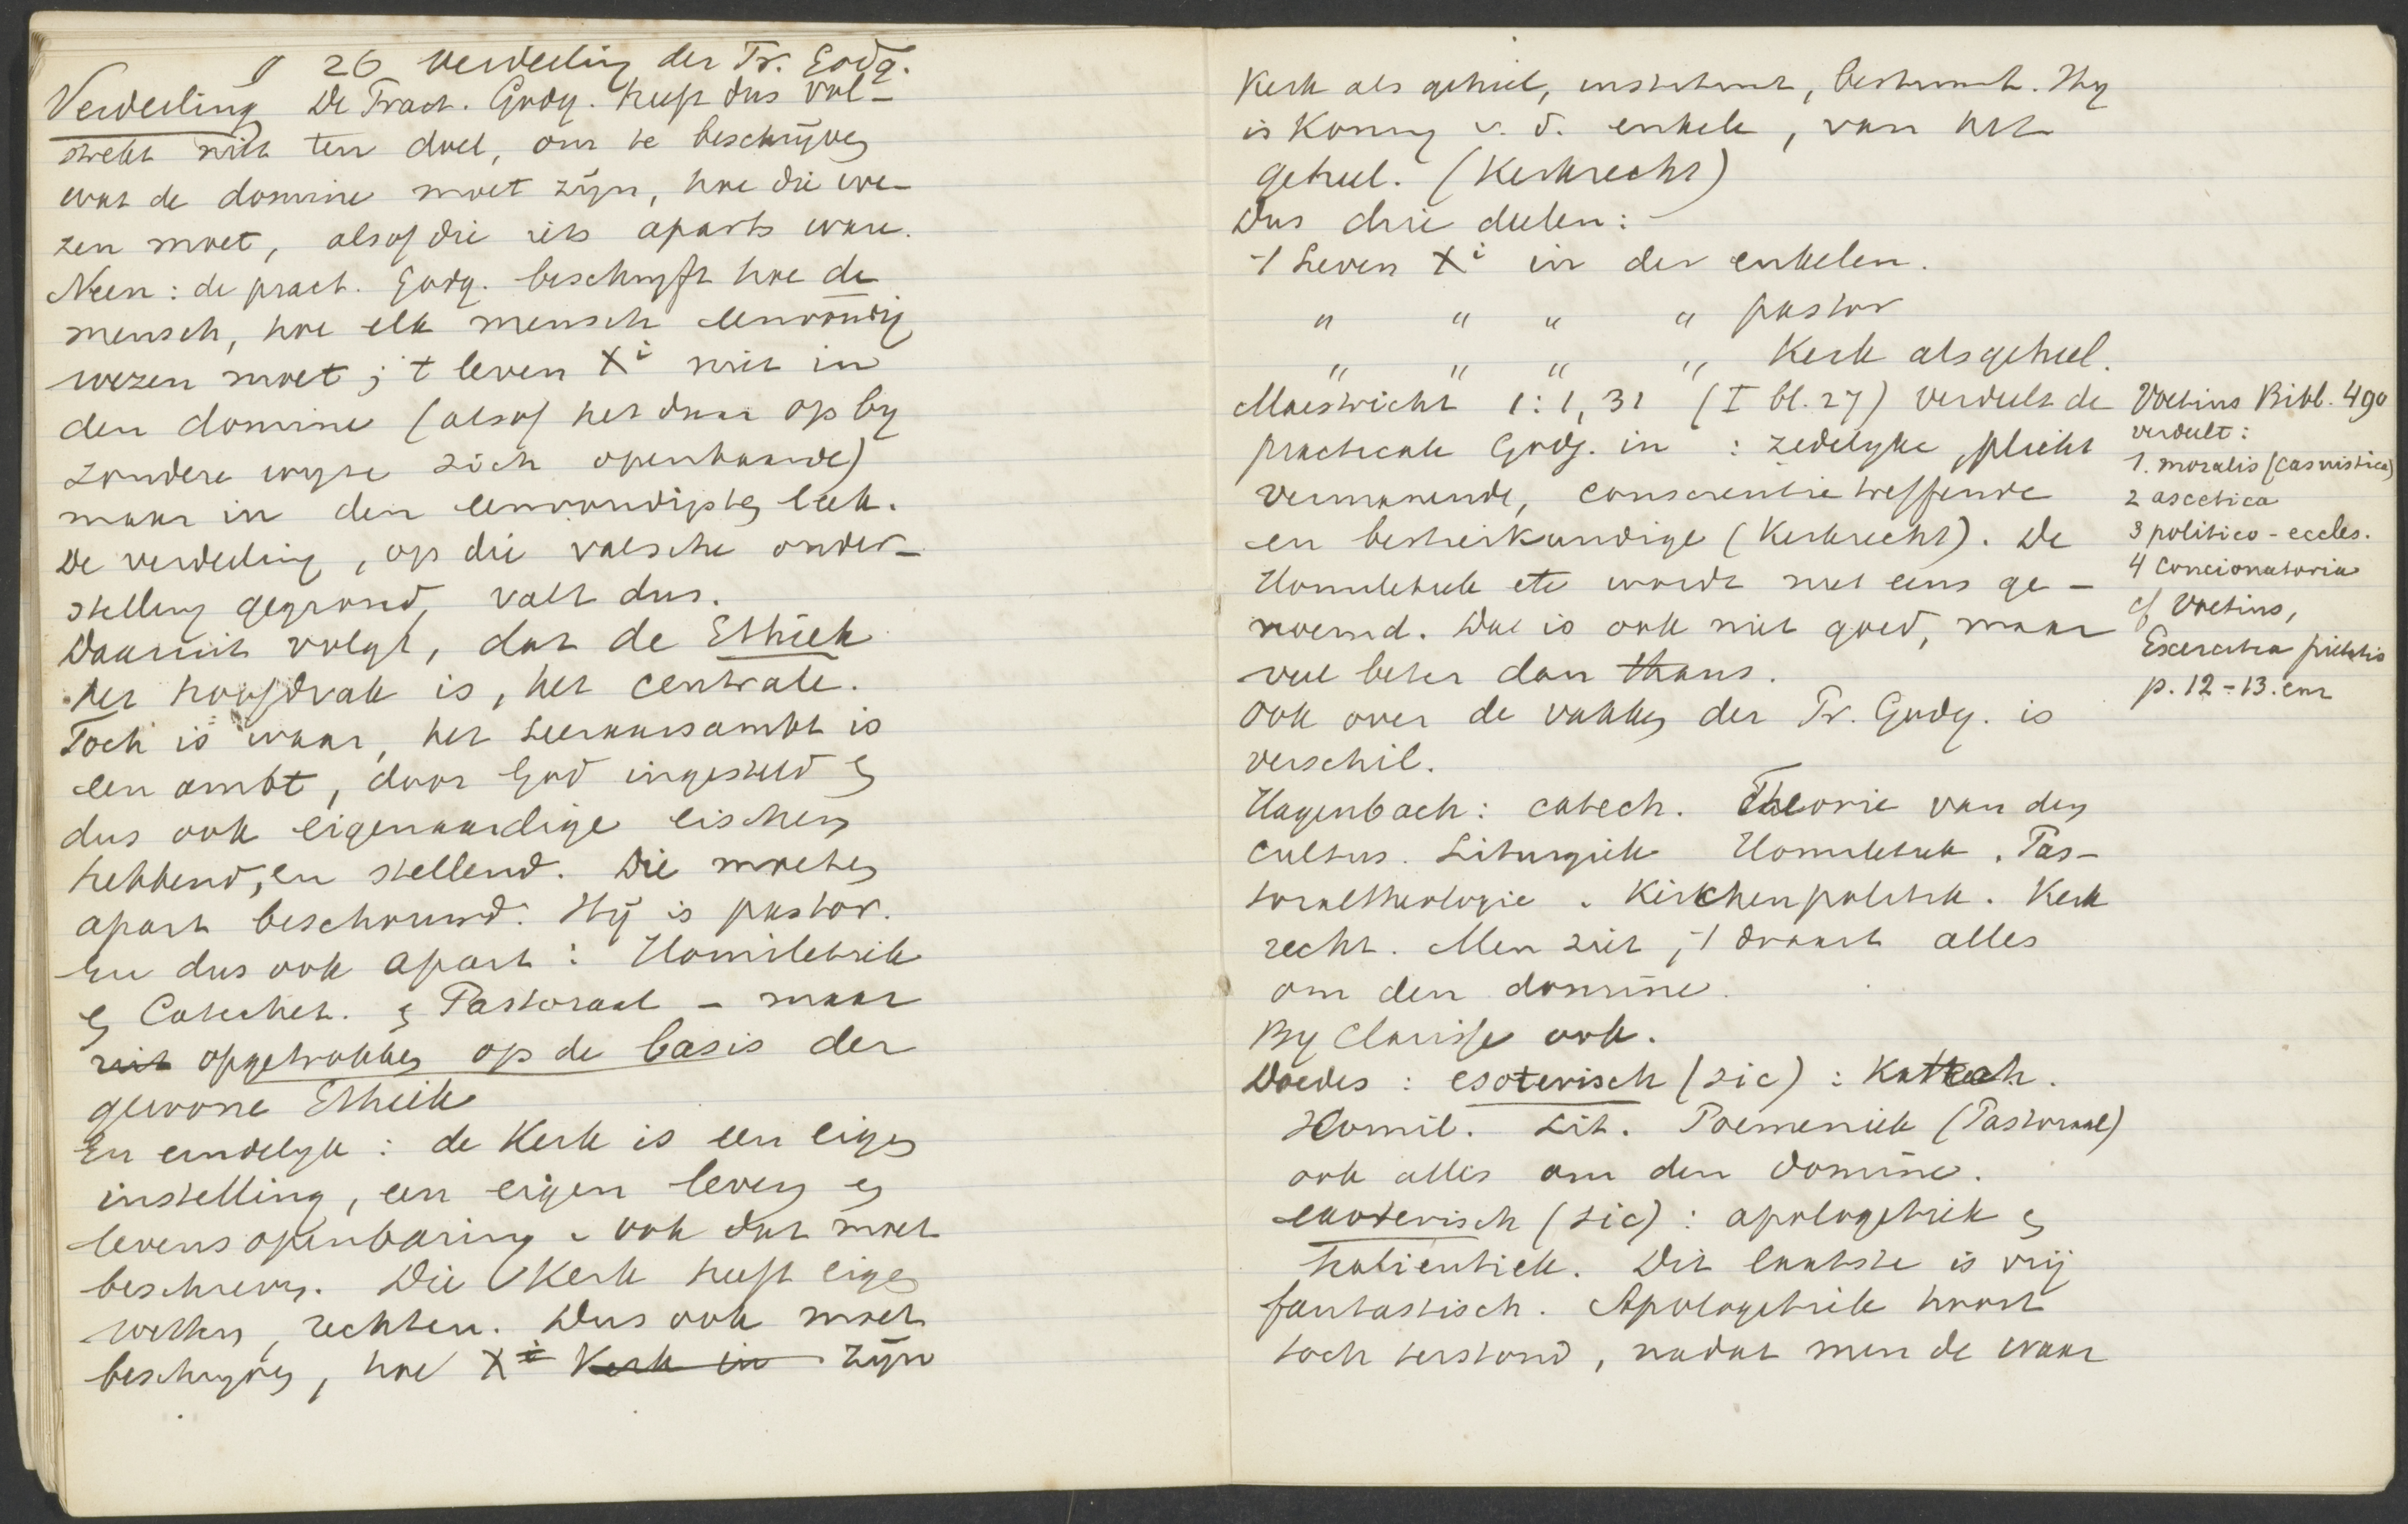 § 26 Verdeeling der Pr. Godg.
Verdeeling De Pract. Godg. heeft dus vol-
strekt niet ten doel, om te beschrijven
wat de domine moet zijn, hoe die we-
zen moet, alsof die iets aparts ware.
Neen: de pract. Godg. beschryft hoe de
mensch, hoe elk mensch eenvoudig
wezen moet; 't leven Xi niet in
den domine (alsof het daar op by
zondere wyze zich openbaarde)
maar in den eenvoudigsten leek.
De verdeeling, op die valsche onder-
stelling gegrond, valt dus.
Daaruit volgt, dat de Ethiek
het hoofdvak is, het centrale.
Toch is waar, het Leeraarsambt is
een ambt, door God ingesteld en
dus ook eigenaardige eischen
hebbend, en stellend. Die moeten
apart beschouwd. Hij is pastor.
En dus ook apart: Homiletiek
en Catechet. en Pastoraal - maar
niet opgetrokken op de basis der
gewone Ethiek
En eindelyk: de Kerk is een eigen
instelling, een eigen leven en
levensopenbaring. Ook dat moet
beschreven. Die Kerk heeft eigen
wetten, rechten. Dus ook moet
beschryven, hoe Xi Kerk in zijn
Kerk als geheel, instituut, bestuurt. Hy
is Koning v. d. enkele, van het
geheel. (Kerkrecht)
Dus drie deelen:
1 Leven Xi in den enkelen.
" " " " pastor
" " " " Kerk als geheel.
Maestricht 1:1, 31 (I bl. 27) verdeelt de
practicale Godg. in: zedelyke, plicht
vermanende, conscientie treffende
en bestierkundige (Kerkrecht). De
Homiletiek etc wordt niet eens ge-
noemd. Dat is ook niet goed, maar
veel beter dan thans.
Ook over de vakken der Pr. Godg. is
verschil.
Hagenbach: catech. Theorie van den
cultus. Liturgiek Homiletiek. Pas-
toraltheologie. Kirchenpolitik. Kerk
recht. Men ziet, 't draait alles
om den domine.
By Clarisse ook.
Doedes: esoterisch (sic): Katech.
Homil. Lit. Poemeniek (Pastoraal)
ook alles om den domine.
exoterisch (sic): apologetiek en
halientiek. Dit laatste is vrij
fantastisch. Apologetiek hoort
toch terstond, nadat men de waar
Voetius Bibl. 490
verdeelt:
1. moralis (casuistica)
2 ascetica
3 politico-eccles.
4 concionatoria
cf Voetius,
Exercitia pietatis
p. 12-13.